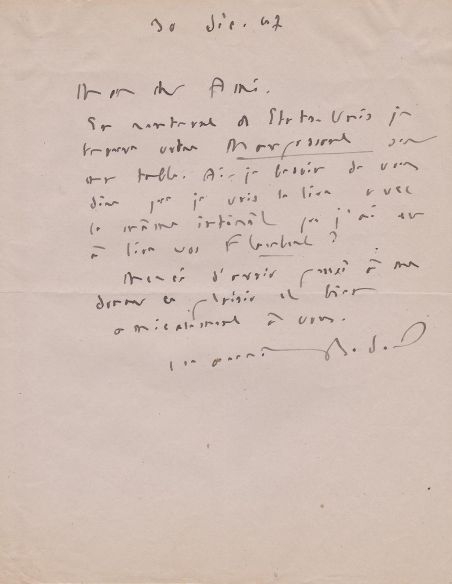 30 déc. 47
Mon cher Ami.
En rentrant d' Etats-Unis je
trouve votre Maupassant sur
ma table. Ai-je besoin de vous
dire que je vais le lire avec
le même intérêt que j'ai eu
à lire vos Flaubert ?
Merci d'avoir pensé à me
donner ce plaisir et bien
amicalement à vous.